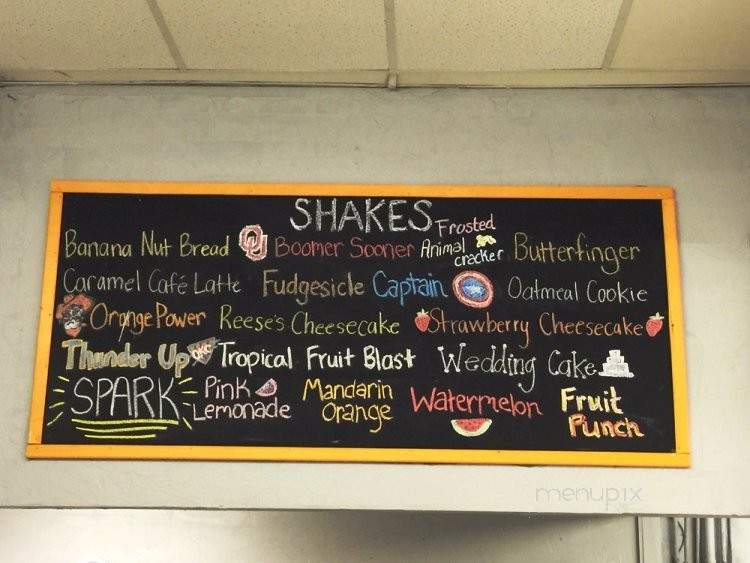 SHAKES
Banana Nut Bread OU Boomer Sooner Frosted Animal cracker Butterfinger
Caramel Café Latte Fudgesicle Captain Oatmeal Cookie
Orange Power Reese's Cheesecake Strawberry Cheesecake
Thunder Up OKC Tropical Fruit Blast Wedding Cake
SPARK Pink Lemonade Mandarin Orange Watermelon Fruit Punch
menupix